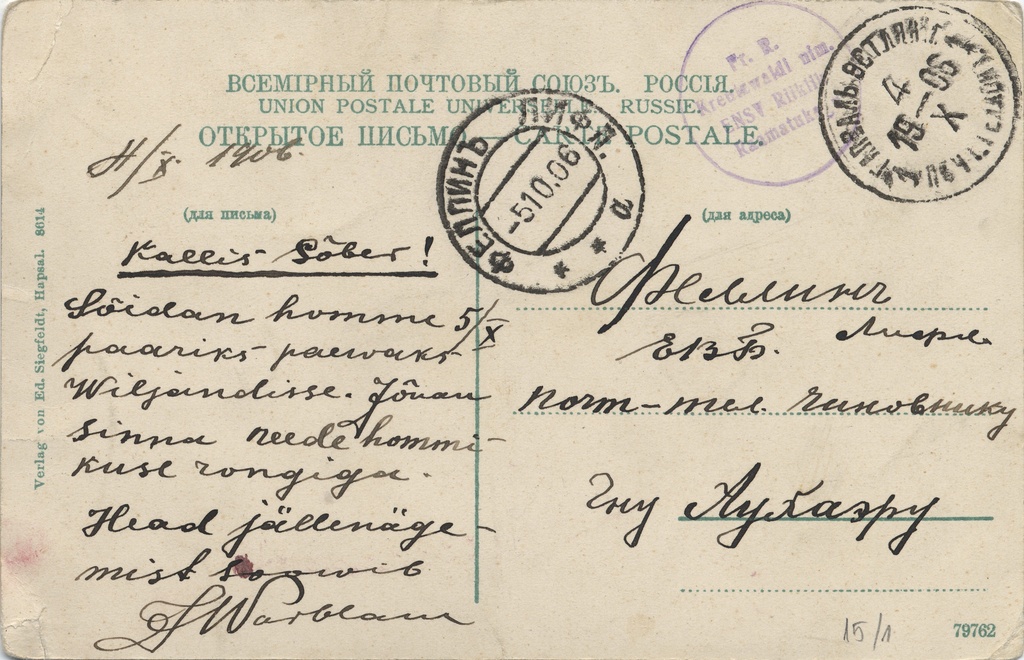 ВСЕМІРНЫЙ ПОЧТОВЫЙ СОЮЗЪ. РОССІЯ.
UNION POSTALE UNIVERSELLE. RUSSIE.
ОТКРЫТОЕ ПИСЬМО. — CARTE POSTALE.
Fr. R.
Kreutzwaldi nim.
ENSV Riiklik
Raamatukogu
ГАПСАЛЬ ЭСТЛЯН. Г.
4
19—06
X
ФЕЛЛИНЪ ЛИФЛ.
-5.10.06
* * а
4/X 1906
(для письма)
Kallis Sõber!
Sõidan homme 5/X
paariks paewaks
Wiljandisse. Jõuan
sinna reede hommi-
kuse rongiga.
Head jällenäge-
mist soowib
JWarblane
(для адреса)
Феллинъ
Лифл.
ЕВБ.
почт-тел. чиновнику
Гну Аухаэру
Verlag von Ed. Siegfeldt, Hapsal. 8614
15/1
79762